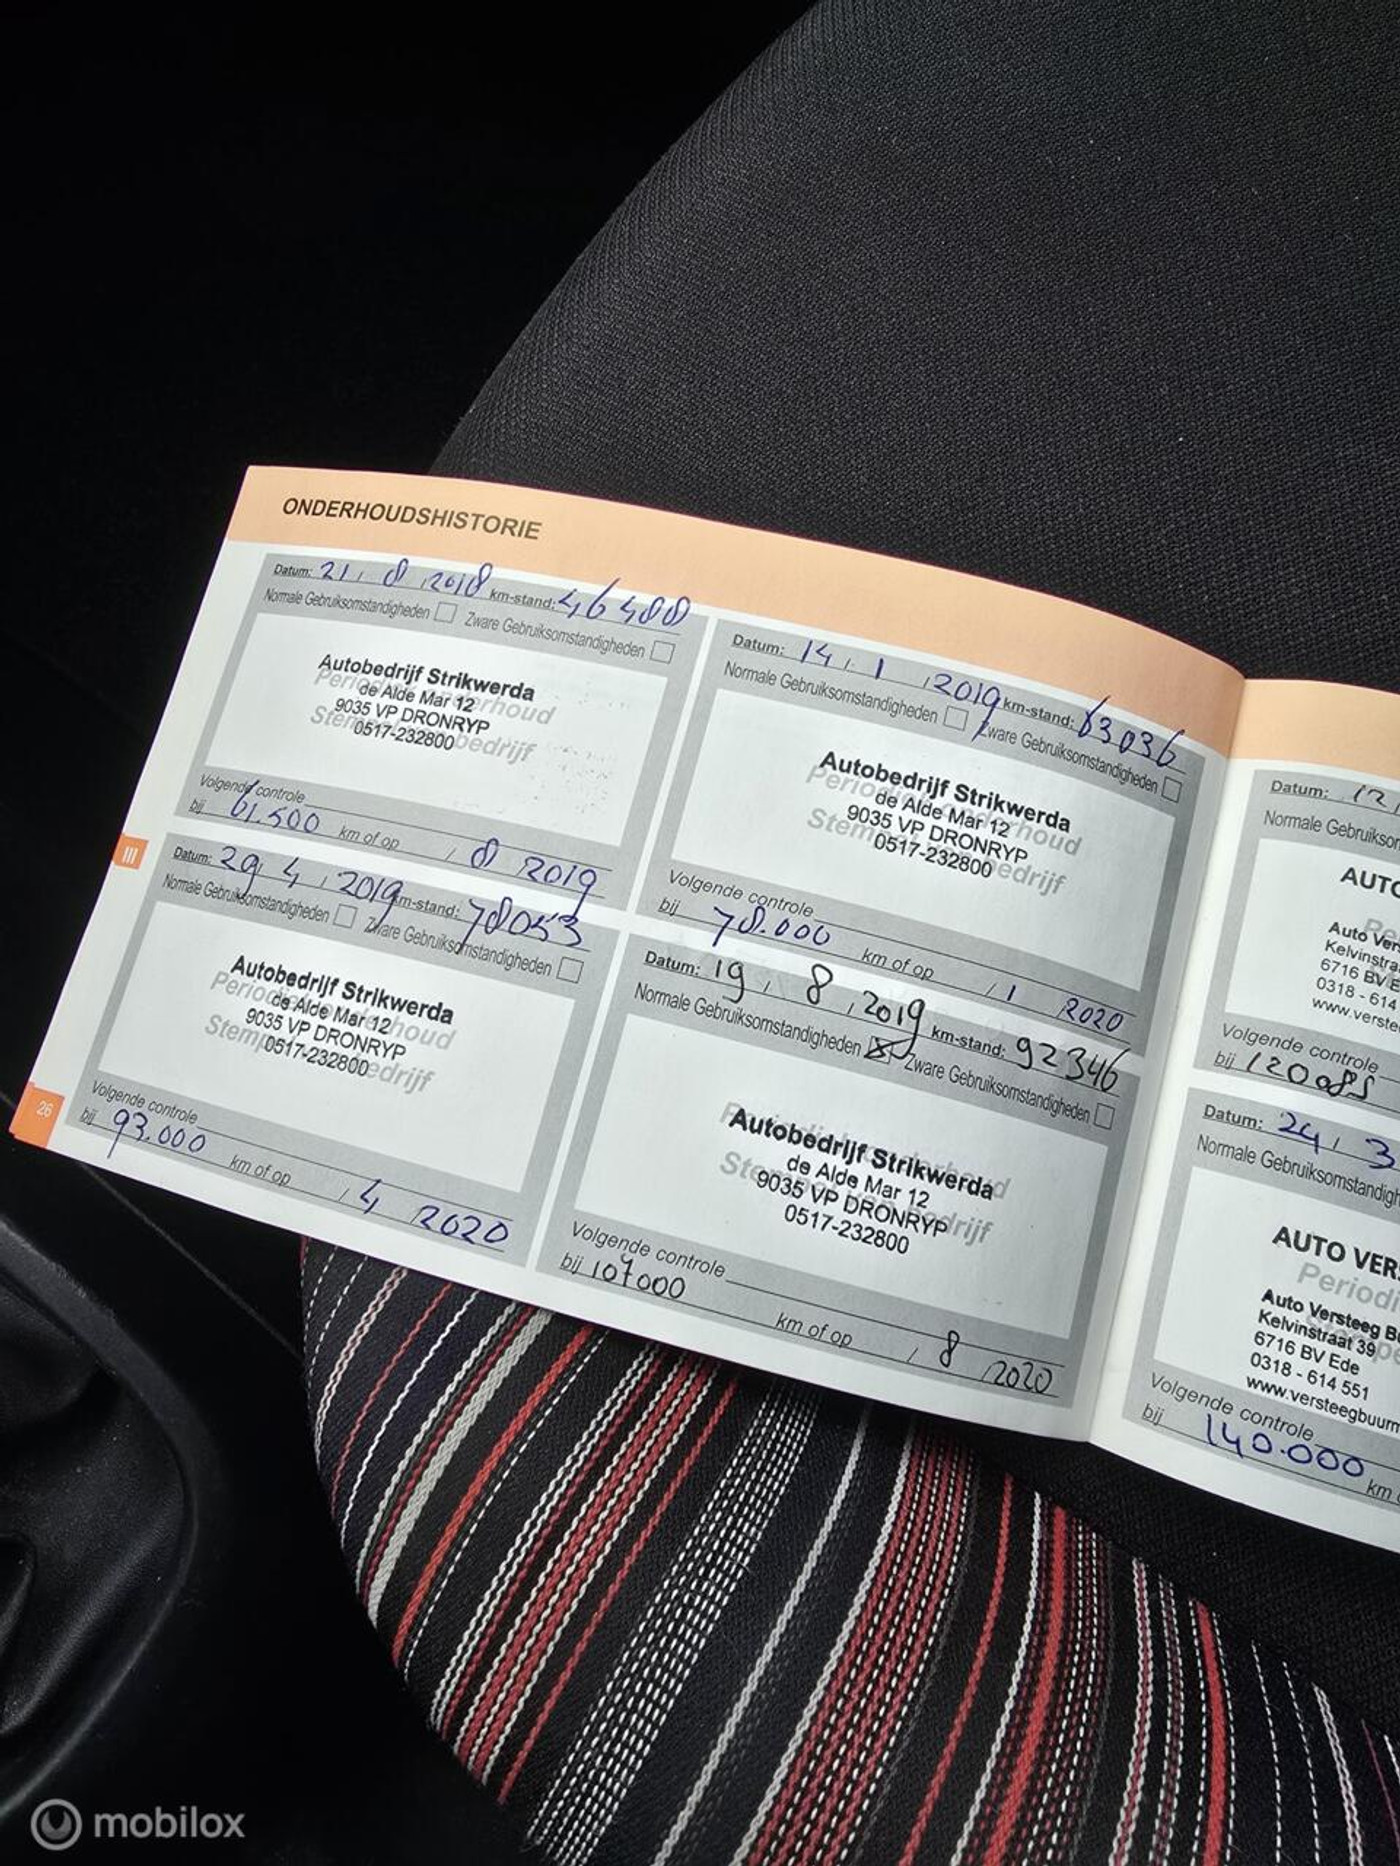 ONDERHOUDSHISTORIE
Datum: 21 / 8 / 2018 km-stand: 46488
Normale Gebruiksomstandigheden Zware Gebruiksomstandigheden
Periodiek onderhoud
Stempel bedrijf
Autobedrijf Strikwerda
de Alde Mar 12
9035 VP DRONRYP
0517-232800
Volgende controle
bij 61.500 km of op / 8 2019
Datum: 14 / 1 / 2019 km-stand: 63036
Normale Gebruiksomstandigheden Zware Gebruiksomstandigheden
Periodiek onderhoud
Stempel bedrijf
Autobedrijf Strikwerda
de Alde Mar 12
9035 VP DRONRYP
0517-232800
Volgende controle
bij 78.000 km of op / 1 2020
III
Datum: 29 / 4 / 2019 km-stand: 78053
Normale Gebruiksomstandigheden Zware Gebruiksomstandigheden
Autobedrijf Strikwerda
de Alde Mar 12
9035 VP DRONRYP
0517-232800
Volgende controle
bij 93.000 km of op / 4 2020
26
Datum: 19 / 8 / 2019 km-stand: 92346
Normale Gebruiksomstandigheden Zware Gebruiksomstandigheden
Autobedrijf Strikwerda
de Alde Mar 12
9035 VP DRONRYP
0517-232800
Volgende controle
bij 107000 km of op / 8 2020
Datum: 12
Normale Gebruikson
AUTO
Auto Vers
Kelvinstra
6716 BV E
0318 - 614
www.verste
Volgende controle
bij 120085
Datum: 24 / 3
Normale Gebruiksomstandigh
AUTO VERS
Periodi
Auto Versteeg B
Kelvinstraat 39
6716 BV Ede
0318 - 614 551
www.versteegbuurm
Volgende controle
bij 140.000 km
mobilox